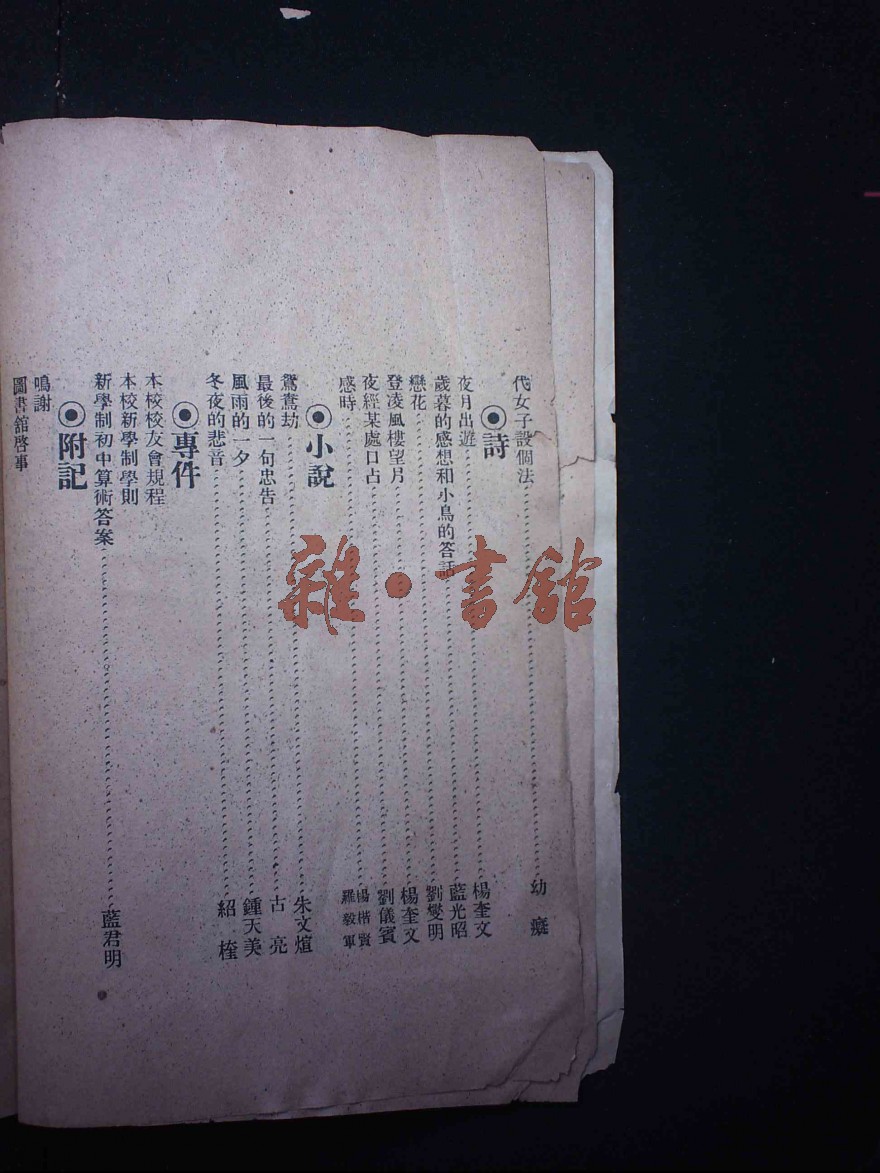 代女子設個法……幼癡
◉詩
夜月出遊……楊奎文
歲暮的感想和小鳥的答話……藍光昭
戀花……劉燮明
登凌風樓望月……楊奎文
夜經某處口占……劉儀賓
感時……楊楷賢 羅毅軍
◉小說
鴛鴦劫……朱文煊
最後的一句忠告……古亮
風雨的一夕……鍾天美
冬夜的悲音……紹桂
◉專件
本校校友會規程
本校新學制學則
新學制初中算術答案……藍君明
◉附記
鳴謝
圖書舘啓事
雜·書舘